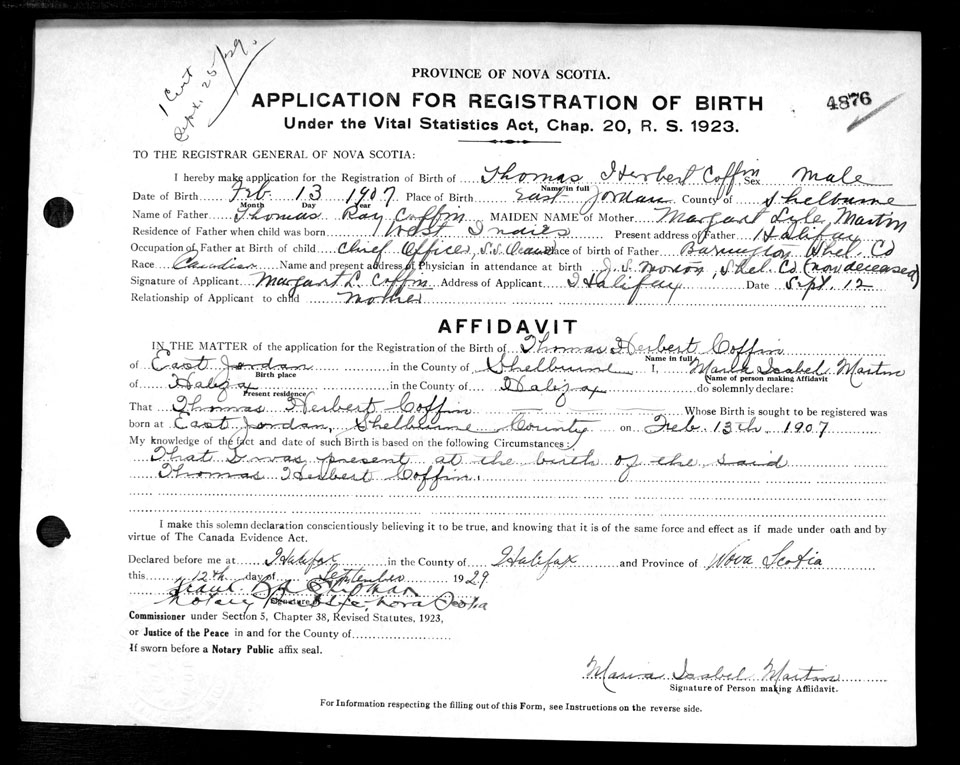 1 Cert
Sept. 25/29.
PROVINCE OF NOVA SCOTIA.
APPLICATION FOR REGISTRATION OF BIRTH
4876
Under the Vital Statistics Act, Chap. 20, R. S. 1923.
TO THE REGISTRAR GENERAL OF NOVA SCOTIA:
I hereby make application for the Registration of Birth of Thomas Herbert Coffin Sex Male
Name in full
Date of Birth Feb. 13 1907 Place of Birth East Jordan County of Shelburne
Month Day Year
Name of Father Thomas Ray Coffin MAIDEN NAME of Mother Margaret Lyle Martin
Residence of Father when child was born West Indies Present address of Father Halifax
Occupation of Father at Birth of child Chief Officer, S.S. Place of birth of Father Barrington Shel. Co
Race Canadian Name and present address of Physician in attendance at birth J. S. Shel. Co. (now deceased)
Signature of Applicant Margaret L. Coffin Address of Applicant Halifax Date Sept. 12
Relationship of Applicant to child Mother
AFFIDAVIT
IN THE MATTER of the application for the Registration of the Birth of Thomas Herbert Coffin
Name in full
of East Jordan in the County of Shelburne I, Maria Isabel Martin
Birth place Name of person making Affidavit
of Halifax in the County of Halifax do solemnly declare:
Present residence
That Thomas Herbert Coffin Whose Birth is sought to be registered was
born at East Jordan, Shelburne County on Feb. 13th, 1907
My knowledge of the fact and date of such Birth is based on the following Circumstances:
That I was present at the birth of the said
Thomas Herbert Coffin.
I make this solemn declaration conscientiously believing it to be true, and knowing that it is of the same force and effect as if made under oath and by
virtue of The Canada Evidence Act.
Declared before me at Halifax in the County of Halifax and Province of Nova Scotia
this 12th day of September 1929
Notary Public, Nova Scotia
Signature
Commissioner under Section 5, Chapter 38, Revised Statutes, 1923,
or Justice of the Peace in and for the County of
If sworn before a Notary Public affix seal.
Maria Isabel Martin
Signature of Person making Affidavit.
For Information respecting the filling out of this Form, see Instructions on the reverse side.